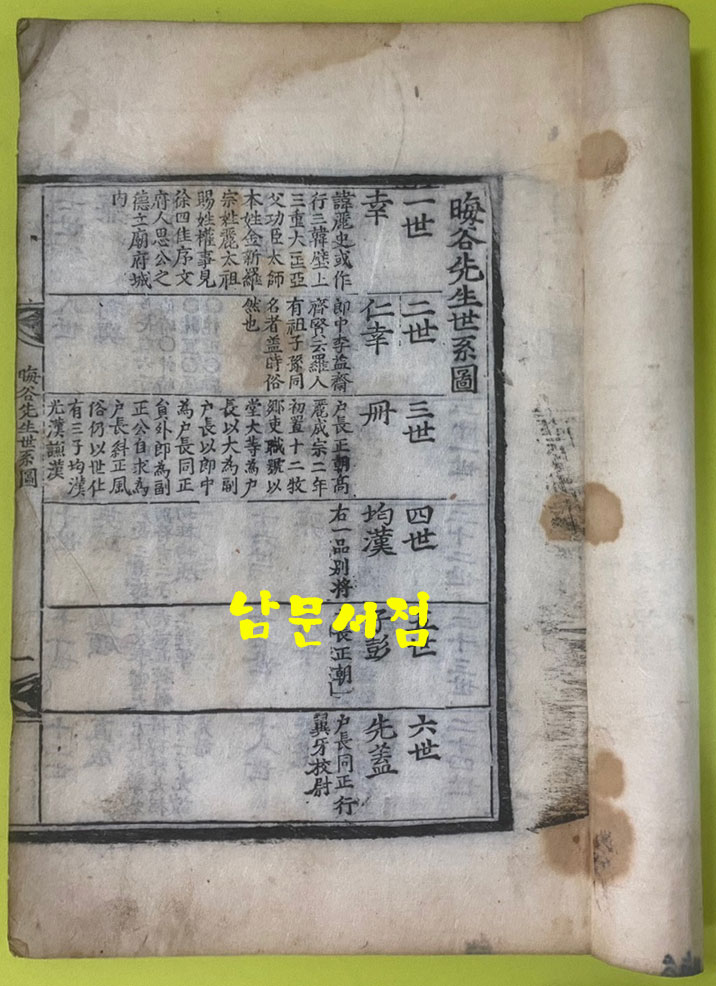 晦谷先生世系圖
一世
幸
諱麗史或作
行三韓壁上
三重大匡亞
父功臣太師
本姓金新羅
宗姓麗太祖
賜姓權事見
徐四佳序文
府人思公之
德立廟府城
內
二世
仁幸
郎中李益齋
齊賢云羅人
有祖子孫同
名者盖時俗
然也
三世
冊
户長正朝高
麗成宗二年
初置十二牧
鄉吏職號以
堂大等為户
長以大為副
户長以郎中
為户長同正
負外郎為副
正公自求為
户長斜正風
俗仍以世仕
有三子均漢
光漢謙漢
四世
均漢
右一品別將
五世
子彭
户長正朝
六世
先蓋
户長同正行
巽牙校尉
晦谷先生世系圖
一
남문서점